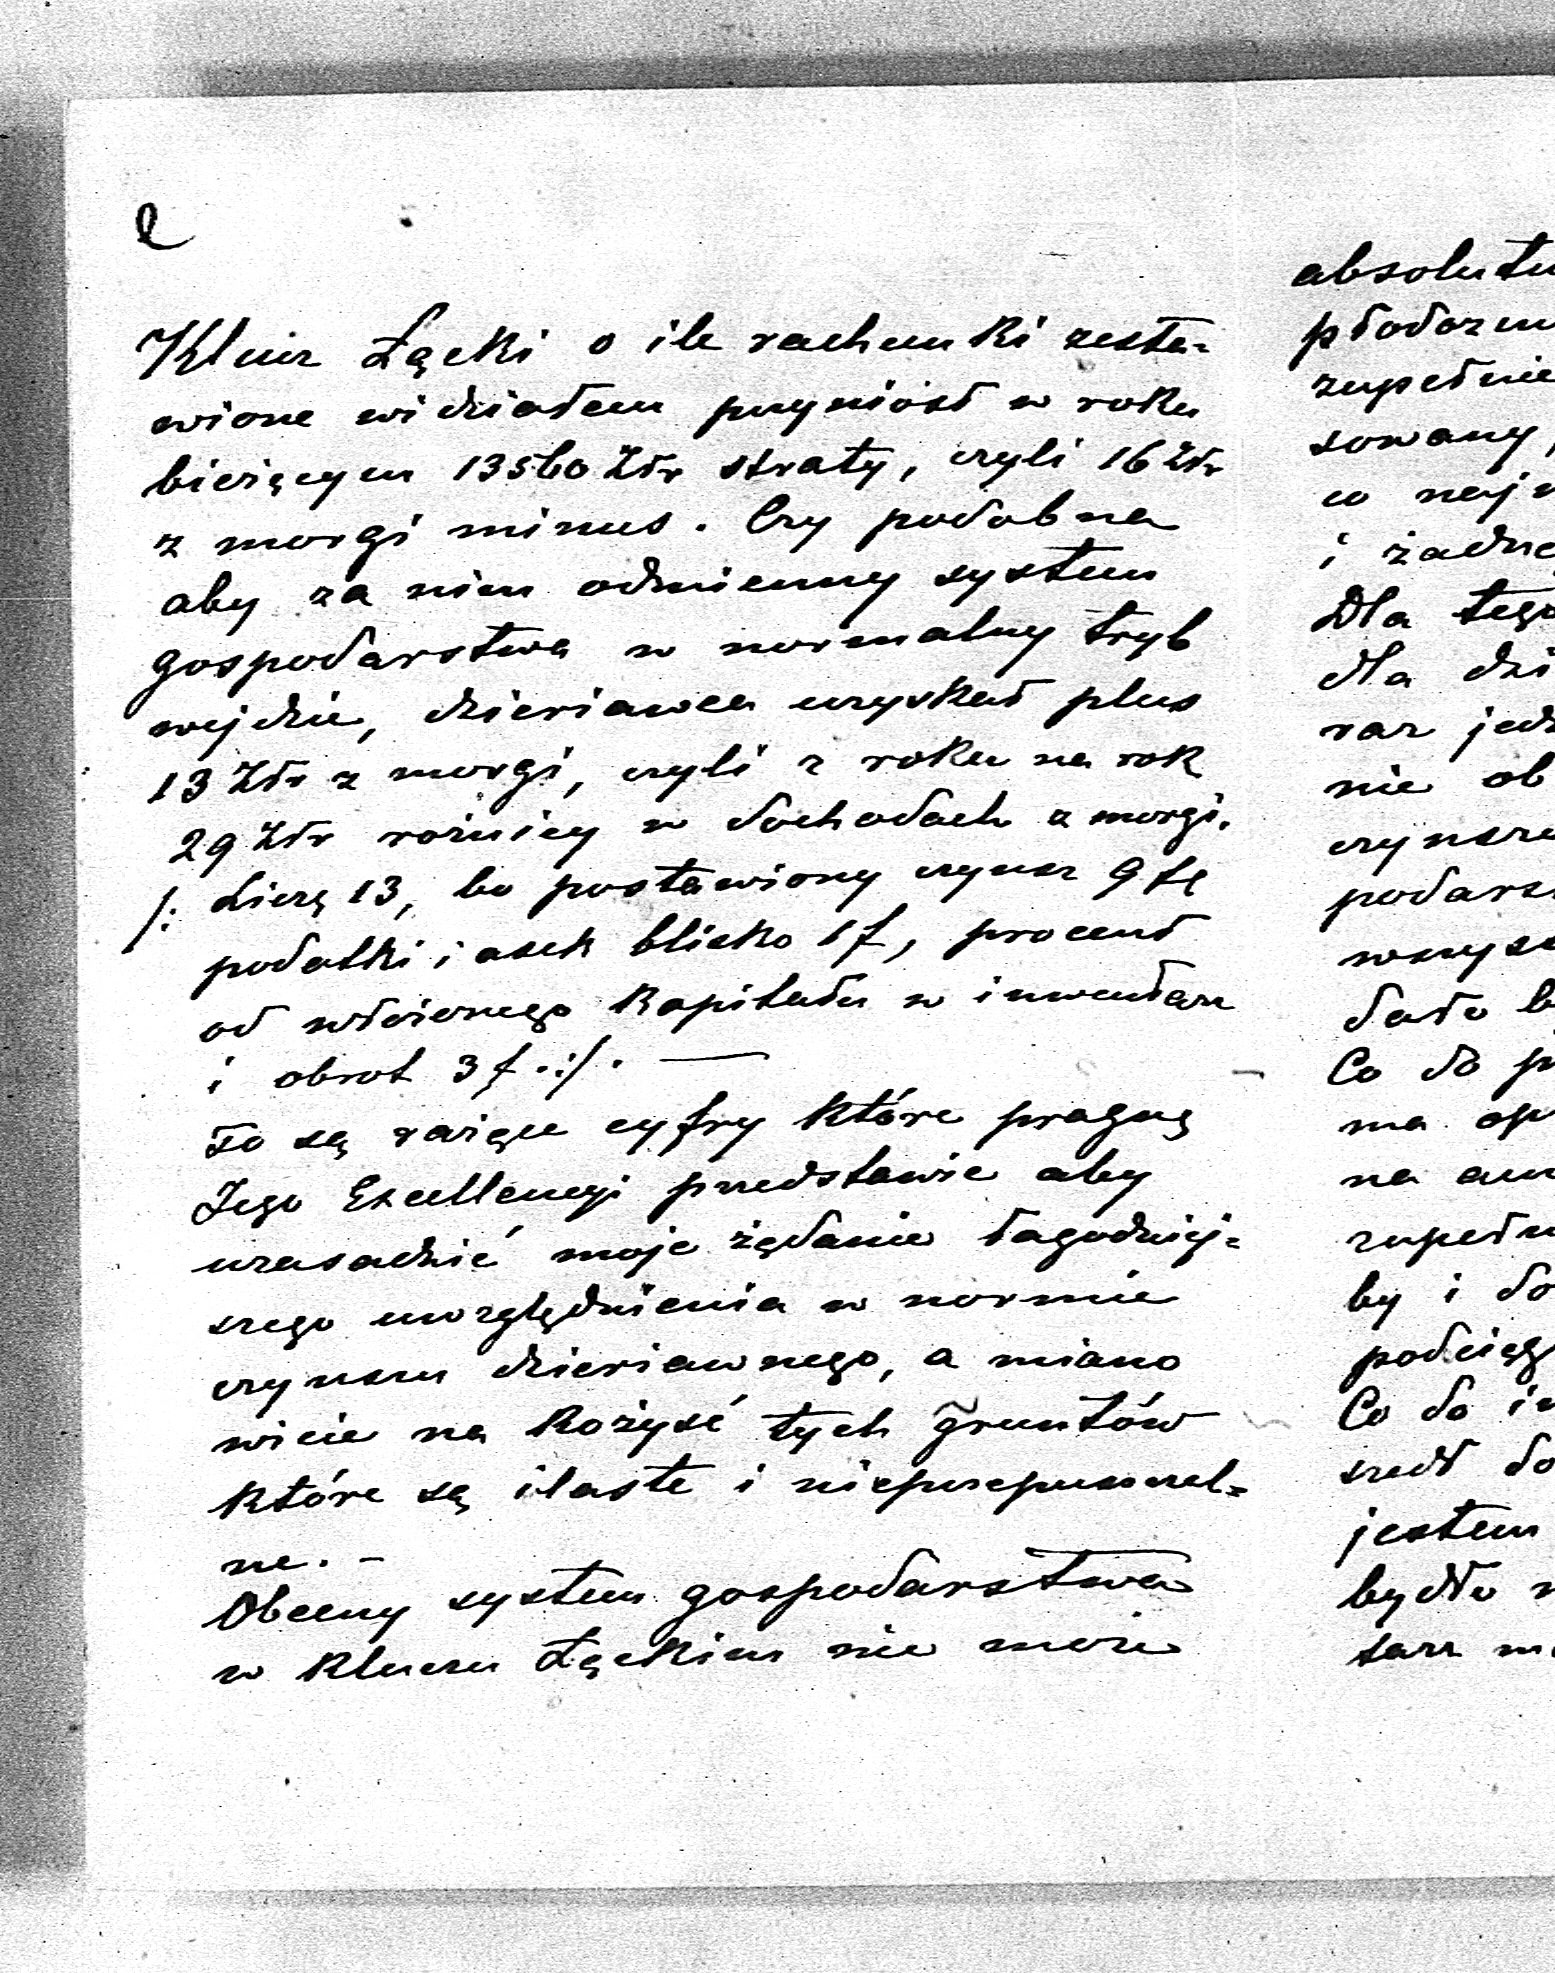 Klucz Łącki o ile rachunki zesta=
wione widziałem przyniósł w roku
bieżącym 13560 Złr straty, czyli 16 Złr
z morgi minus. Czy podobna
aby za nim odmienny system
gospodarstwa w normalny tryb
wejdzie, dzierżawca uzyskał plus
13 Złr z morgi, czyli z roku na rok
29 Złr rożnicy w dochodach z morgi.
/: Liczę 13, bo postawiony czynsz 9 fl
podatki i asek blisko 1 f, procent
od włożonego Kapitału w inwentarz
i obrot 3 f. :/. —
To są rażące cyfry które pragnę
Jego Excellencyi przedstawic aby
uzasadnić moje żądanie łagodniej=
szego uwzględnienia w normie
czynszu dzierżawnego, a miano
wicie na Kożyść tych gruntów
które są ilaste i nieprzepuszczal=
ne. –
Obecny system gospodarstwa
w Kluczu Łąckim nie może
absolutn
płodozm
zupełnie
sowany,
co naj
i żadne
Dla tego
dla dzi
raz jed
nie ob
czynsze
podars
wszys
dało b
Co do p
ma op
na am
zupełn
by i do
podciąg
Co do in
szedł do
jestem
bydło
tarz m